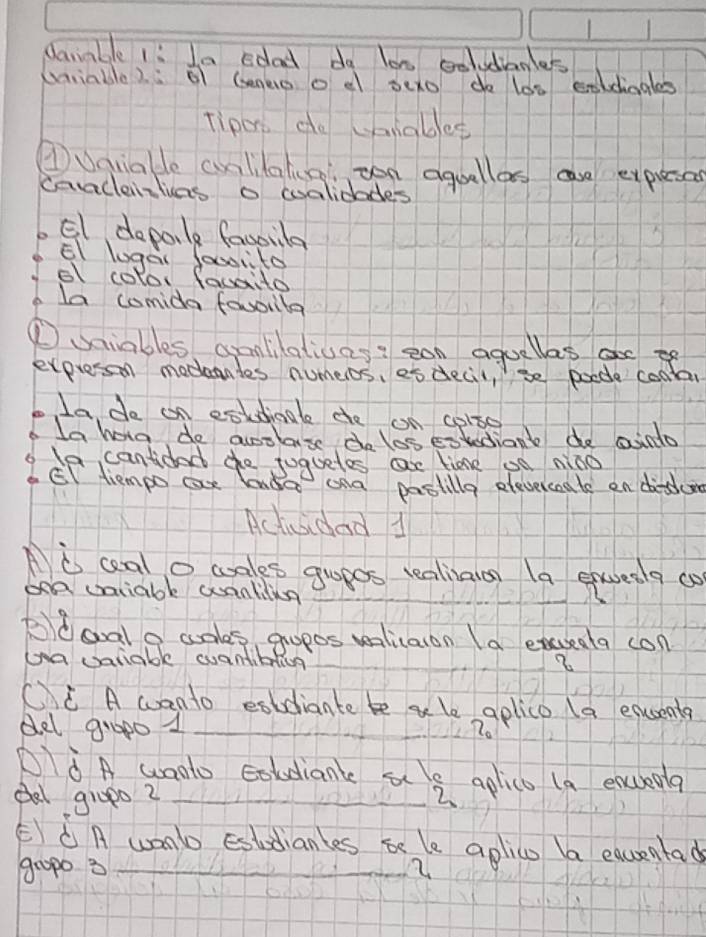 Variable 1: La edad de los estudiantes
Variable 2: El Genero o el sexo de los estudiantes
Tipos de variables
① Variable cualitativa: son aquellas que expresan
caracteristicas o cualidades
• El deporte favorito
• El lugar favorito
• El color favorito
• La comida favorita
② Variables cuantitativas: son aquellas que se
expresan mediantes numeros, es decir, se puede contar
• La de un estudiante de un curso
• La hora de acostarse de los estudiante de quinto
• la cantidad de juguetes que tiene un niño
• El tiempo que tarda una pastilla efervecente en
Actividad 1
A) ¿ cual o cuales grupos realizaron la encuesta co
una variable cuantitiva ?
B) ¿ cual o cuales grupos realicaron la encuesta con
una variable cuantitativa ?
C) ¿ A cuanto estudiante se le aplico la encuenta
del grupo 1 ?
D) ¿ A cuanto estudiante se le aplico la encuenta
del grupo 2 ?
E) ¿ A cuanto Estudiantes se le aplico la encuenta d
grupo 3 ?